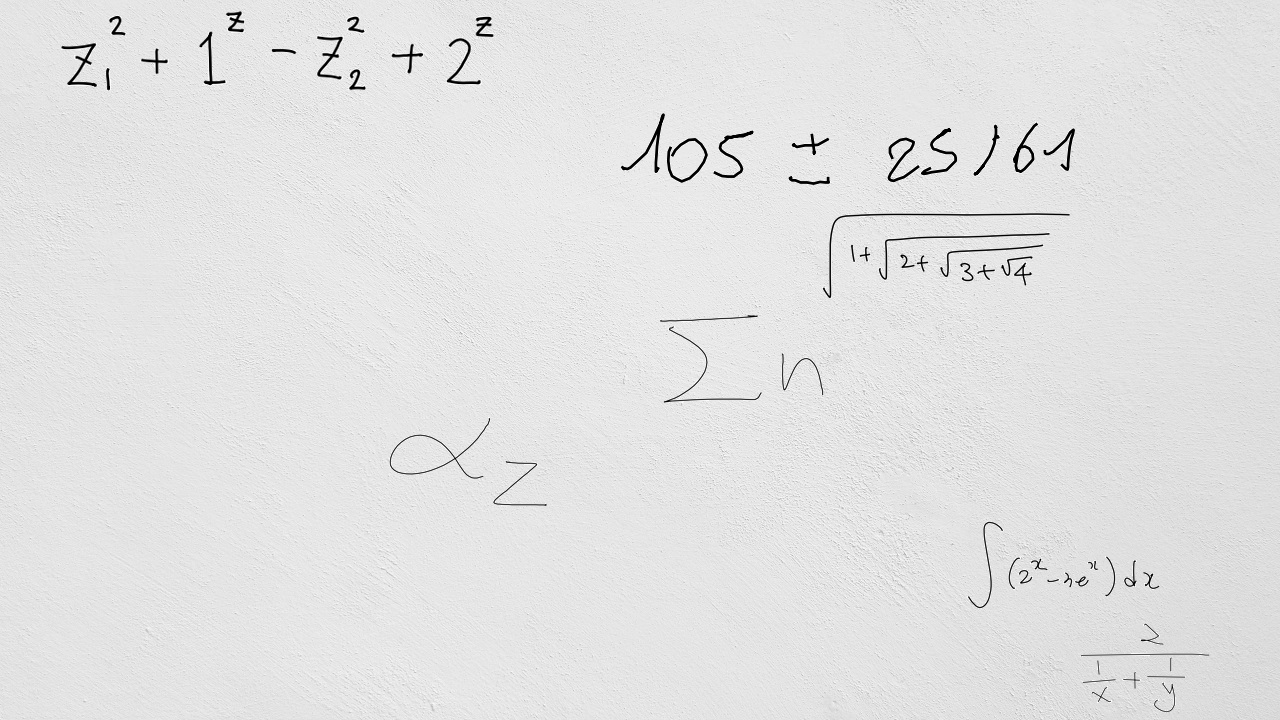 z₁² + 1ᶻ - z₂² + 2ᶻ
105 ± 25/61
√(1+√(2+√(3+√4)))
∑ n
α_z
∫(2ˣ-3eˣ)dx
2/(1/x + 1/y)